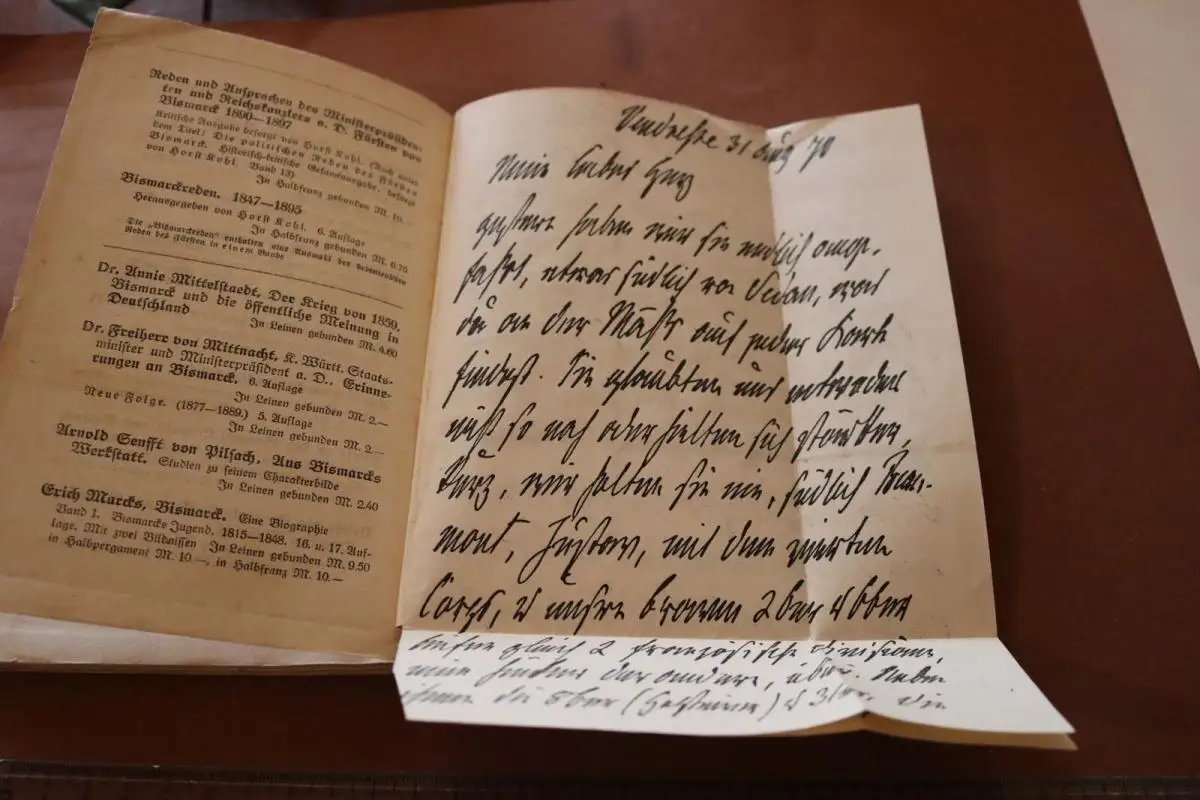 Reden und Ansprachen des Ministerpräsiden-
ten und Reichskanzlers a. D. Fürsten von
Bismarck 1890—1897
Kritische Ausgabe besorgt von Horst Kohl. (Auch unter
dem Titel: Die politischen Reden des Fürsten
Bismarck. Historisch-kritische Gesamtausgabe, besorgt
von Horst Kohl. Band 13)
In Halbfranz gebunden M. 10.—
Bismarckreden. 1847—1895
Herausgegeben von Horst Kohl. 6. Auflage
In Halbfranz gebunden M. 6.75
Die „Bismarckreden“ enthalten eine Auswahl der bedeutendsten
Reden des Fürsten in einem Bande
Dr. Annie Mittelstaedt, Der Krieg von 1859,
Bismarck und die öffentliche Meinung in
Deutschland
In Leinen gebunden M. 4.60
Dr. Freiherr von Mittnacht, K. Württ. Staats-
minister und Ministerpräsident a. D., Erinne-
rungen an Bismarck. 6. Auflage
In Leinen gebunden M. 2.—
Neue Folge. (1877—1889.) 5. Auflage
In Leinen gebunden M. 2.—
Arnold Senfft von Pilsach, Aus Bismarcks
Werkstatt. Studien zu seinem Charakterbilde
In Leinen gebunden M. 2.40
Erich Marcks, Bismarck. Eine Biographie
Band 1. Bismarcks Jugend. 1815—1848. 16. u. 17. Auf-
lage. Mit zwei Bildnissen In Leinen gebunden M. 9.50
in Halbpergament M. 10.—, in Halbfranz M. 10.—
Vendresse 31 Aug 70
Mein liebes Herz
gestern haben wir sie endlich ange-
faßt, etwas südlich von Sedan, was
du an der Maas auf jeder Karte
findest. Sie glaubten uns entweder
nicht so nah oder hielten sich stärker,
kurz, wir faßten sie südlich Beau-
mont, Gustav, mit dem vierten
Corps, u unsre braven 26er u 66er
gleich 2 französische Divisionen,
eine hinter der andern, über. Neben
ihnen die 8ten (Holsteiner) u 31er. Die